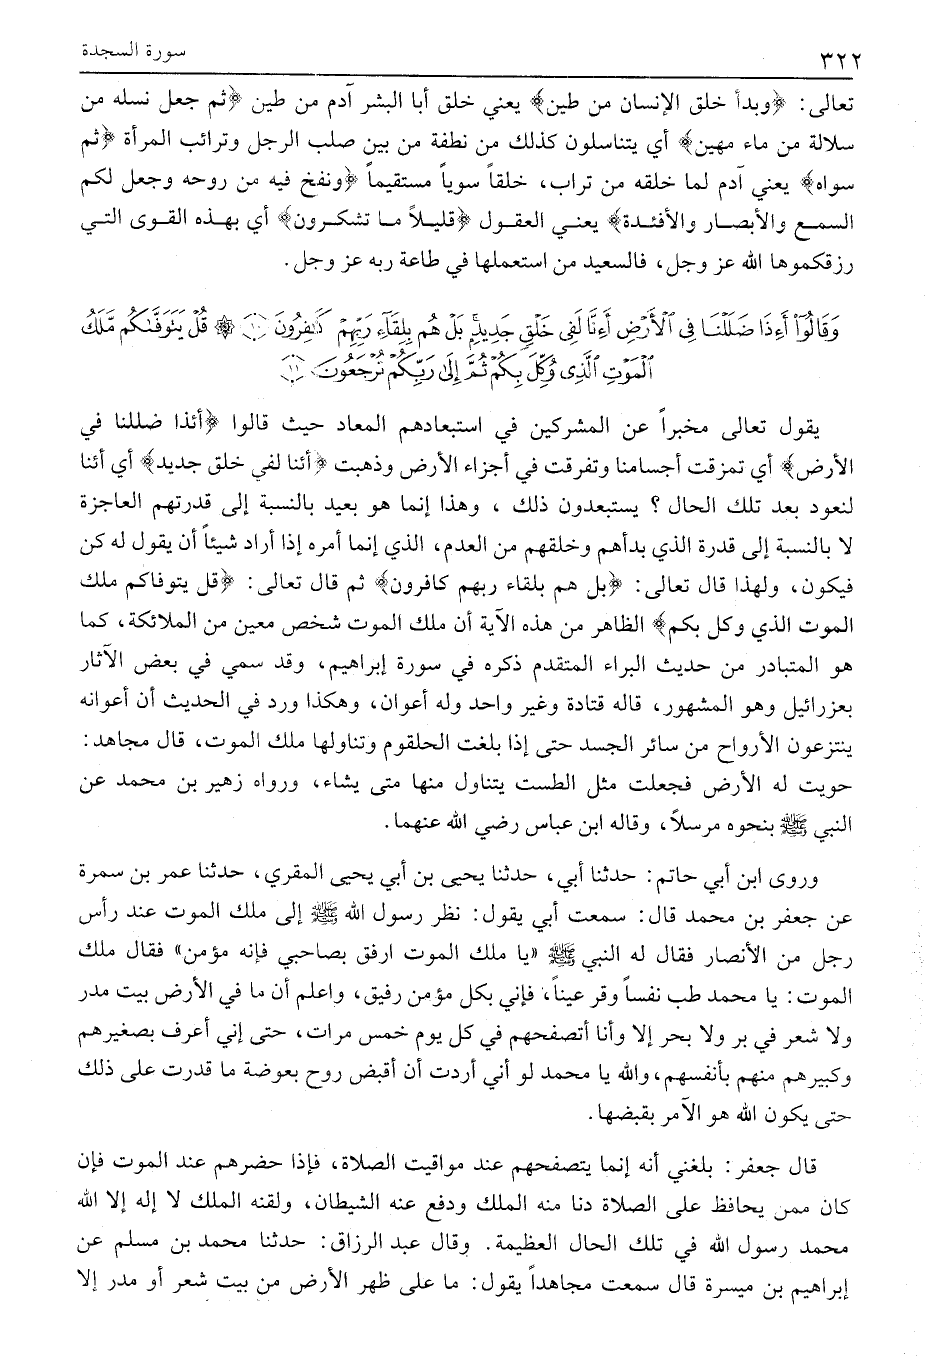 ٣٢٢ سورة السجدة
تعالى: ﴿وبدأ خلق الإنسان من طين﴾ يعني خلق أبا البشر آدم من طين ﴿ثم جعل نسله من
سلالة من ماء مهين﴾ أي يتناسلون كذلك من نطفة من بين صلب الرجل وترائب المرأة ﴿ثم
سواه﴾ يعني آدم لما خلقه من تراب، خلقاً سوياً مستقيماً ﴿ونفخ فيه من روحه وجعل لكم
السمع والأبصار والأفئدة﴾ يعني العقول ﴿قليلاً ما تشكرون﴾ أي بهذه القوى التي
رزقكموها الله عز وجل، فالسعيد من استعملها في طاعة ربه عز وجل.
وَقَالُوٓا۟ أَءِذَا ضَلَلْنَا فِى ٱلْأَرْضِ أَءِنَّا لَفِى خَلْقٍ جَدِيدٍۭ بَلْ هُم بِلِقَآءِ رَبِّهِمْ كَـٰفِرُونَ ﴿١٠﴾ ۞ قُلْ يَتَوَفَّىٰكُم مَّلَكُ
ٱلْمَوْتِ ٱلَّذِى وُكِّلَ بِكُمْ ثُمَّ إِلَىٰ رَبِّكُمْ تُرْجَعُونَ ﴿١١﴾
يقول تعالى مخبراً عن المشركين في استبعادهم المعاد حيث قالوا ﴿أئذا ضللنا في
الأرض﴾ أي تمزقت أجسامنا وتفرقت في أجزاء الأرض وذهبت ﴿أئنا لفي خلق جديد﴾ أي أئنا
لنعود بعد تلك الحال؟ يستبعدون ذلك، وهذا إنما هو بعيد بالنسبة إلى قدرتهم العاجزة
لا بالنسبة إلى قدرة الذي بدأهم وخلقهم من العدم، الذي إنما أمره إذا أراد شيئاً أن يقول له كن
فيكون، ولهذا قال تعالى: ﴿بل هم بلقاء ربهم كافرون﴾ ثم قال تعالى: ﴿قل يتوفاكم ملك
الموت الذي وكل بكم﴾ الظاهر من هذه الآية أن ملك الموت شخص معين من الملائكة، كما
هو المتبادر من حديث البراء المتقدم ذكره في سورة إبراهيم، وقد سمي في بعض الآثار
بعزرائيل وهو المشهور، قاله قتادة وغير واحد وله أعوان، وهكذا ورد في الحديث أن أعوانه
ينتزعون الأرواح من سائر الجسد حتى إذا بلغت الحلقوم وتناولها ملك الموت، قال مجاهد:
حويت له الأرض فجعلت مثل الطست يتناول منها متى يشاء، ورواه زهير بن محمد عن
النبي ﷺ بنحوه مرسلاً، وقاله ابن عباس رضي الله عنهما.
وروى ابن أبي حاتم: حدثنا أبي، حدثنا يحيى بن أبي يحيى المقري، حدثنا عمر بن سمرة
عن جعفر بن محمد قال: سمعت أبي يقول: نظر رسول الله ﷺ إلى ملك الموت عند رأس
رجل من الأنصار فقال له النبي ﷺ «يا ملك الموت ارفق بصاحبي فإنه مؤمن» فقال ملك
الموت: يا محمد طب نفساً وقر عيناً، فإني بكل مؤمن رفيق، واعلم أن ما في الأرض بيت مدر
ولا شعر في بر ولا بحر إلا وأنا أتصفحهم في كل يوم خمس مرات، حتى إني أعرف بصغيرهم
وكبيرهم منهم بأنفسهم، والله يا محمد لو أني أردت أن أقبض روح بعوضة ما قدرت على ذلك
حتى يكون الله هو الآمر بقبضها.
قال جعفر: بلغني أنه إنما يتصفحهم عند مواقيت الصلاة، فإذا حضرهم عند الموت فإن
كان ممن يحافظ على الصلاة دنا منه الملك ودفع عنه الشيطان، ولقنه الملك لا إله إلا الله
محمد رسول الله في تلك الحال العظيمة. وقال عبد الرزاق: حدثنا محمد بن مسلم عن
إبراهيم بن ميسرة قال سمعت مجاهداً يقول: ما على ظهر الأرض من بيت شعر أو مدر إلا